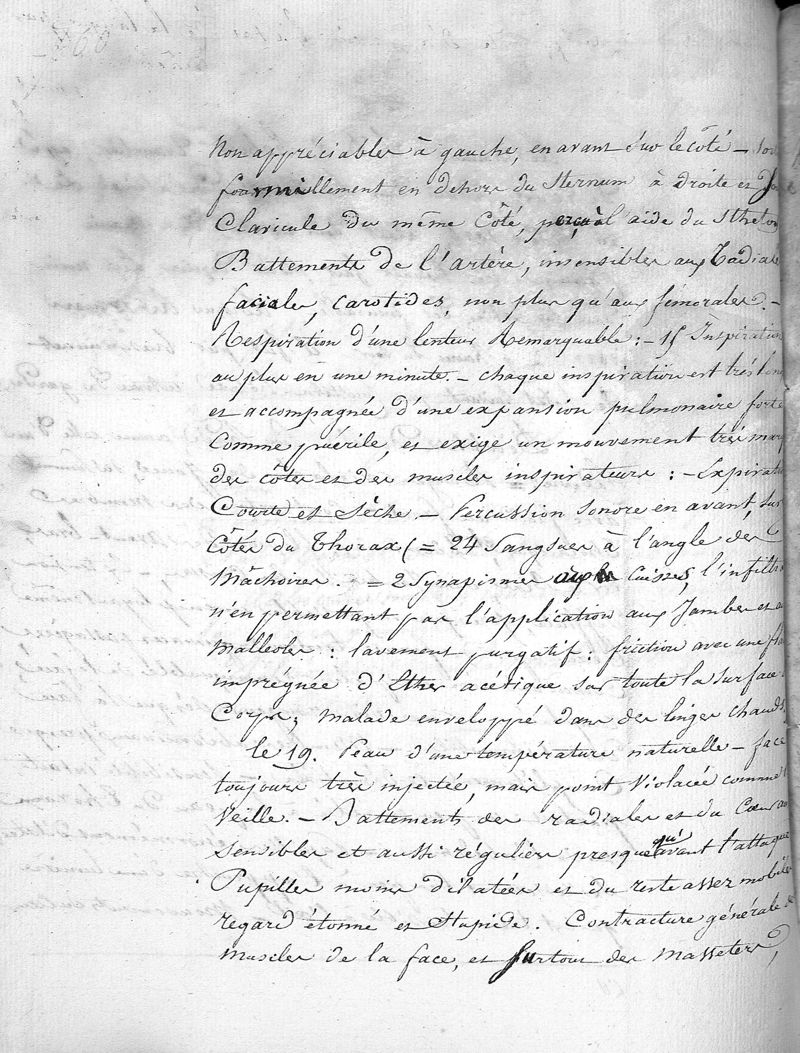 Non appréciables à gauche, en avant sur le côté –
fourmillement en dehors du sternum à droite et
Clavicule du même Côté, perçu à l'aide du sthetos
Battements de l'artère, insensibles aux Radiales
faciales, carotides, non plus qu'aux fémorales. –
Respiration d'une lenteur Remarquable : – 15 Inspiration
au plus en une minute. – chaque inspiration est très lon
et accompagnée d'une expansion pulmonaire forte
Comme puérile, et exige un mouvement très marq
des côtes et des muscles inspirateurs : – Expirati
Courte et Sèche. – Percussion Sonore en avant, sur
Côtés du Thorax (= 24 Sangsues à l'angle des
Mâchoires. = 2 Synapismes aux Cuisses, l'infiltr
n'en permettant pas l'application aux Jambes et a
Malleoles : lavement purgatif : friction avec une fla
imprégnée d'Ether acétique sur toute la surface
Corps; malade enveloppé dans des linges chauds.
le 19. Peau d'une température naturelle – face
toujours très injectée, mais point Violacée comme l
Veille. – Battements des radiales et du Cœur au
Sensibles et aussi réguliers presque qu'avant l'attaque
Pupilles moins dilatées et du reste assez mobiles
regard étonné et Stupide. Contracture générale d
Muscles de la face, et Surtout des Masseters,